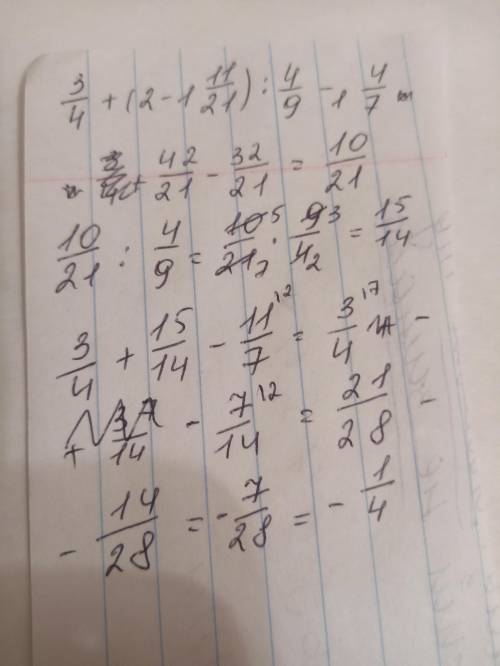 3/4 + (2 - 1 11/21) : 4/9 - 1 4/7 =
= 42/21 - 32/21 = 10/21
10/21 : 4/9 = 10 5/21 7 · 9 3/4 2 = 15/14
3/4 + 15/14 - 11/7 12 = 3/4 17 -
- 7/14 12 = 21/28 -
- 14/28 = - 7/28 = - 1/4